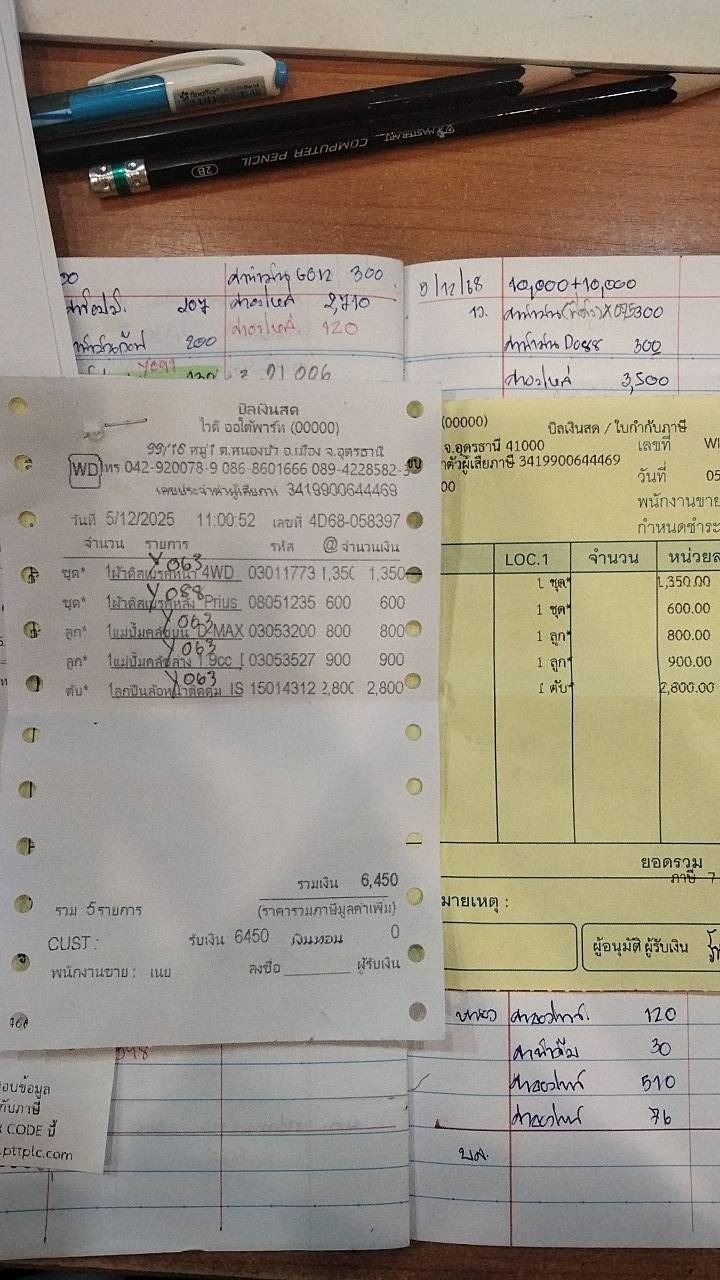 MASTERART COMPUTER PENCIL 2B
300
207
2,710
200
120
Y097
21 006
5/12/68 10,000+10,000
300
ค่าน้ำมัน D088 300
ค่าอะไหล่ 3,500
บิลเงินสด
ไวดี ออโต้พาร์ท (00000)
99/16 หมู่1 ต.หนองบัว อ.เมือง จ.อุดรธานี
WD โทร 042-920078-9 086-8601666 089-4228582-3
เลขประจำตัวผู้เสียภาษี 3419900644469
วันที่ 5/12/2025 11:00:52 เลขที่ 4D68-058397
จำนวน รายการ รหัส @ จำนวนเงิน
Y063
ชุด* 1ผ้าดิสเบรคหน้า 4WD 03011773 1,350 1,350
Y088
ชุด* 1ผ้าดิสเบรคหลัง Prius 08051235 600 600
Y063
ลูก* 1แม่ปั๊มคลัชบน D-MAX 03053200 800 800
Y063
ลูก* 1แม่ปั๊มคลัชล่าง 1.9cc 03053527 900 900
Y063
ตับ* 1ลูกปืนล้อหน้าติดดุม IS 15014312 2,800 2,800
รวมเงิน 6,450
รวม 5รายการ (ราคารวมภาษีมูลค่าเพิ่ม)
CUST : รับเงิน 6450 เงินทอน 0
พนักงานขาย : เนย ลงชื่อ ผู้รับเงิน
(00000) บิลเงินสด / ใบกำกับภาษี
จ.อุดรธานี 41000 เลขที่
ตัวผู้เสียภาษี 3419900644469
00 วันที่ 05
พนักงานขาย
กำหนดชำระ
LOC.1 จำนวน หน่วยล
1 ชุด* 1,350.00
1 ชุด* 600.00
1 ลูก* 800.00
1 ลูก* 900.00
1 ตับ* 2,800.00
ยอดรวม
ภาษี 7
มายเหตุ :
ผู้อนุมัติ ผู้รับเงิน
ค่าอะไหล่ 120
ค่าน้ำดื่ม 30
ค่าอะไหล่ 510
ค่าอะไหล่ 76
อบข้อมูล
กับภาษี
CODE นี้
.pttplc.com